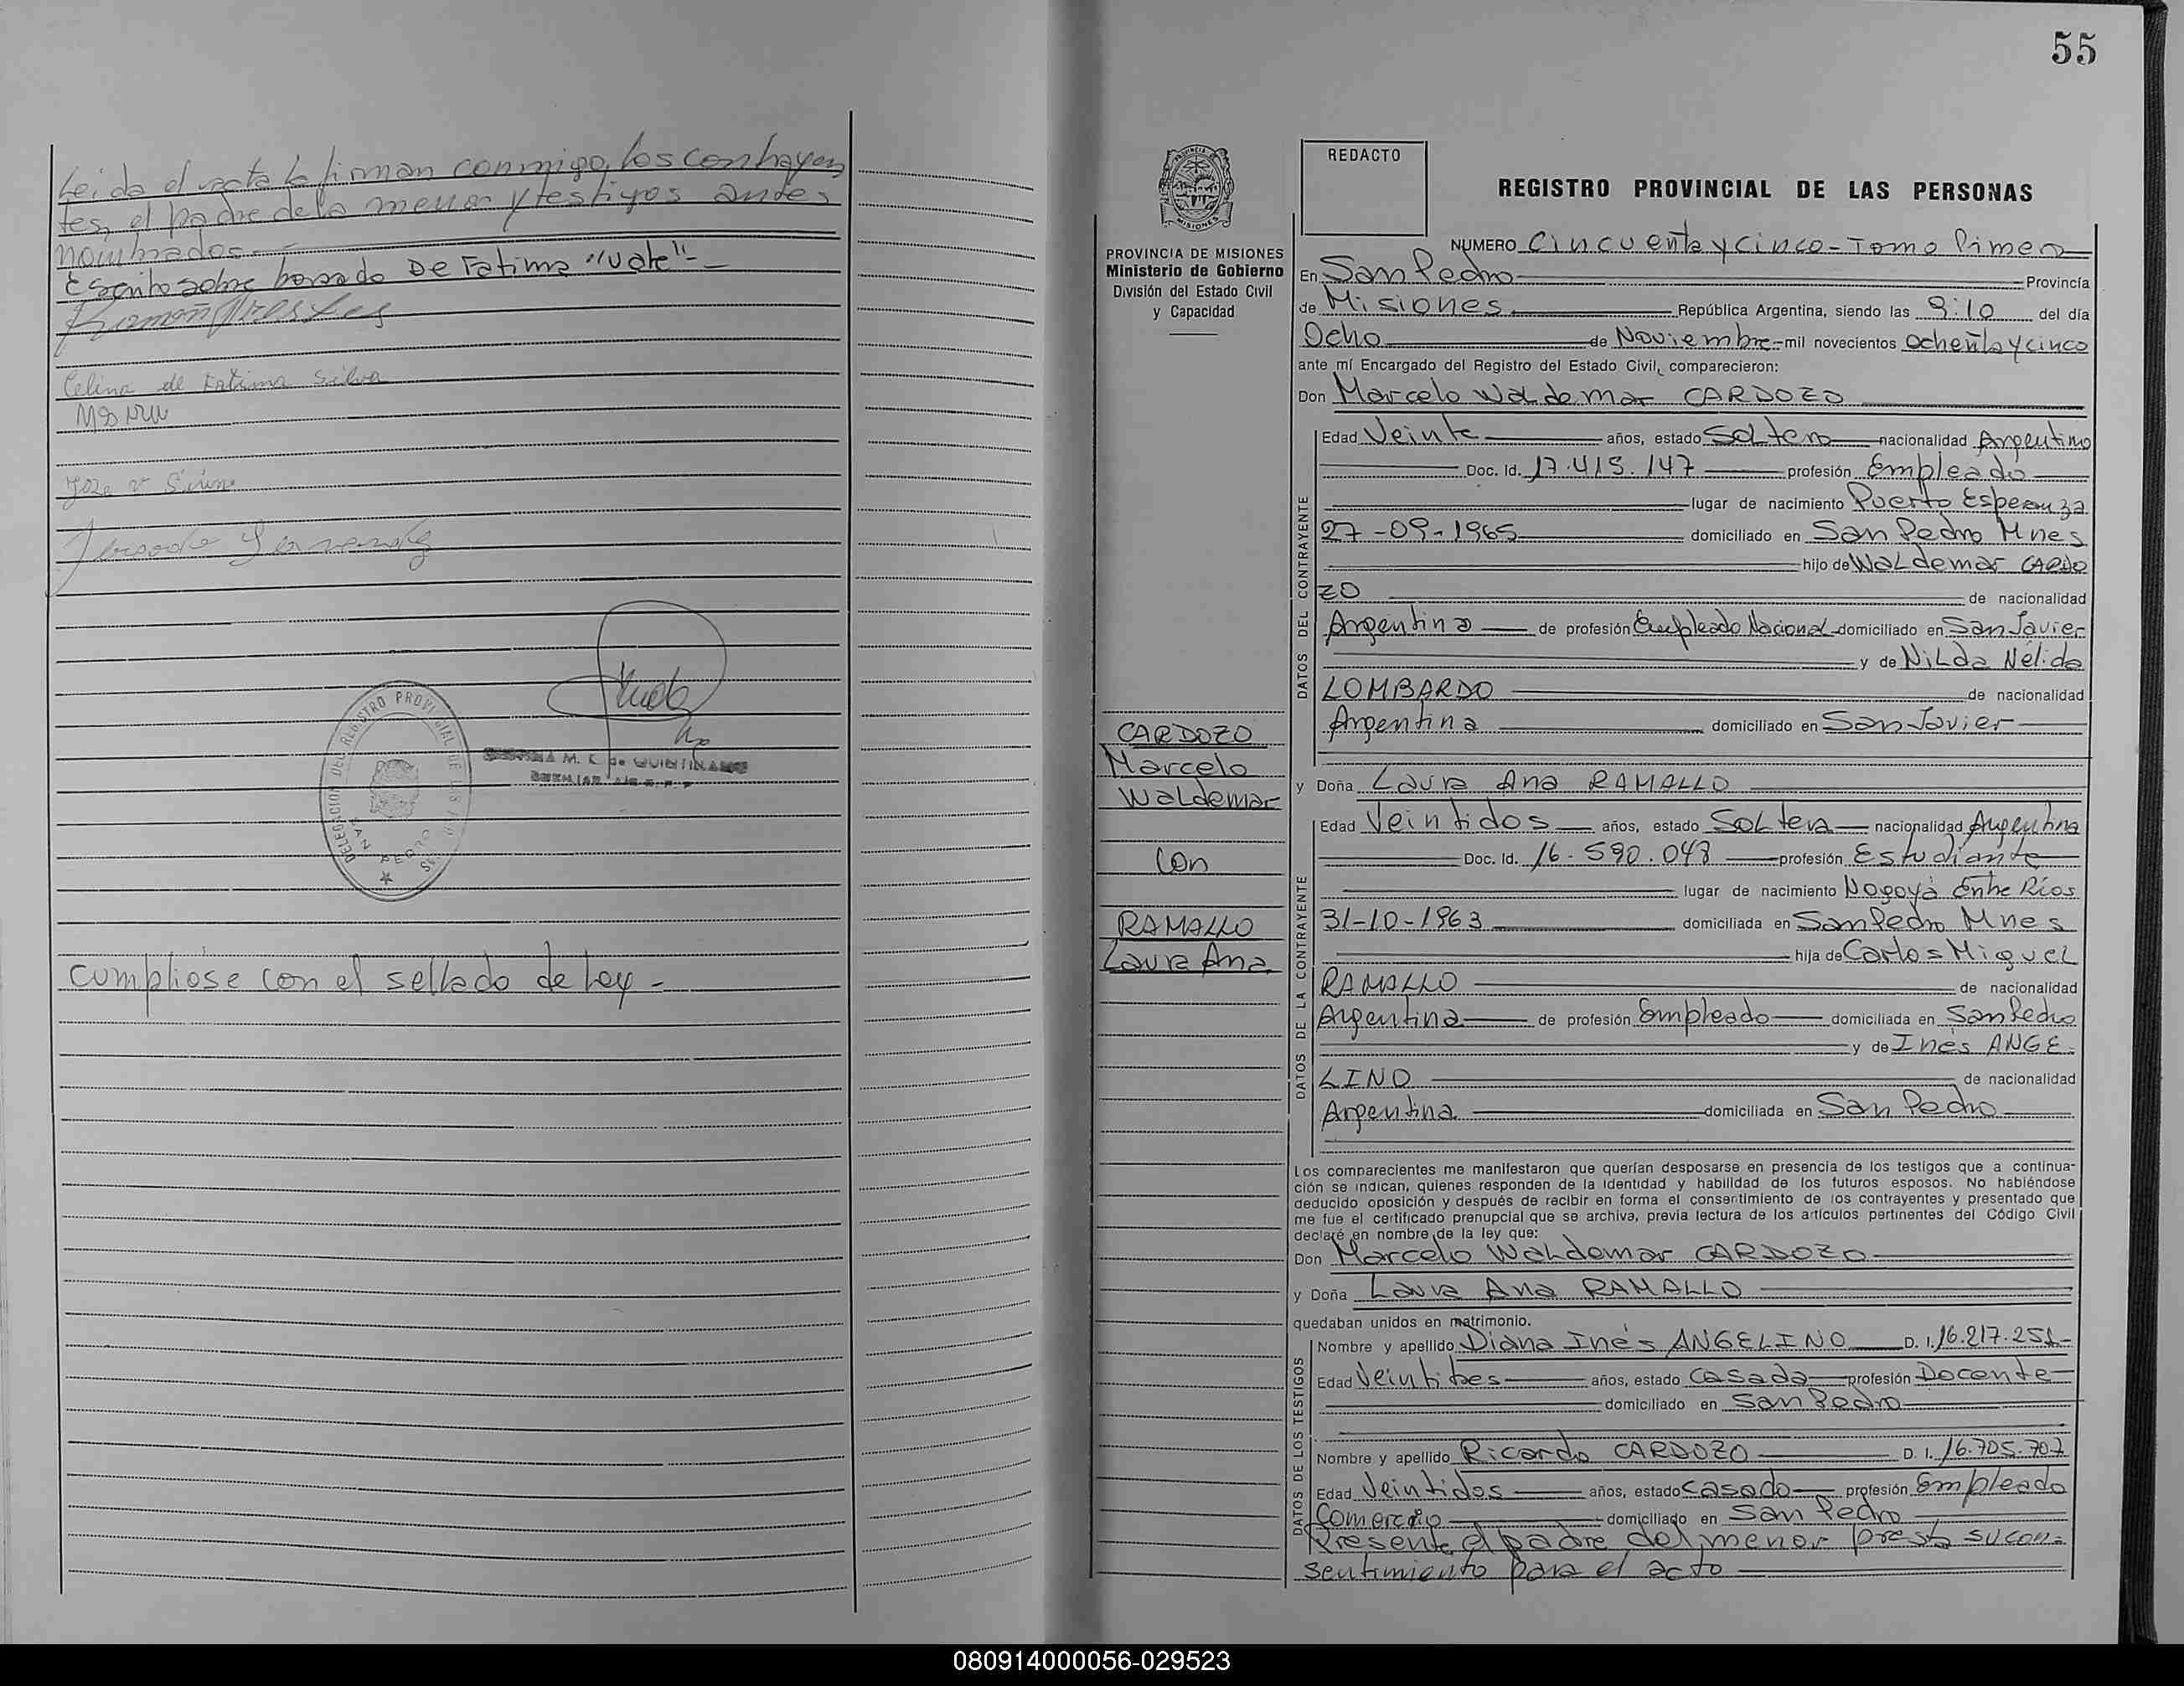 Leida el acta la firman conmigo, los contrayen
tes, el padre de la menor y testigos antes
nombrados.-
Escrito sobre borrado De Fatima "Vale"-
Celina de Fatima Silva
DELEGACION DEL REGISTRO PROVINCIAL DE LAS
SAN PEDRO
M. K. de QUINTINANO
Cumpliose con el sellado de Ley -
55
REDACTO
REGISTRO PROVINCIAL DE LAS PERSONAS
PROVINCIA DE MISIONES
Ministerio de Gobierno
División del Estado Civil
y Capacidad
CARDOZO
Marcelo
Waldemar
Con
RAMALLO
Laura Ana
NUMERO Cincuenta y cinco - Tomo Primero
En San Pedro Provincia
de Misiones República Argentina, siendo las 9:10 del día
Ocho de Noviembre mil novecientos ochenta y cinco
ante mí Encargado del Registro del Estado Civil, comparecieron:
Don Marcelo Waldemar CARDOZO
DATOS DEL CONTRAYENTE
Edad Veinte años, estado Soltero nacionalidad Argentino
Doc. Id. 17.415.147 profesión Empleado
lugar de nacimiento Puerto Esperanza
27-09-1965 domiciliado en San Pedro Mnes
hijo de Waldemar CARDO
ZO de nacionalidad
Argentina de profesión Empleado Nacional domiciliado en San Javier
y de Nilda Nélida
LOMBARDO de nacionalidad
Argentina domiciliado en San Javier
y Doña Laura Ana RAMALLO
DATOS DE LA CONTRAYENTE
Edad Veintidos años, estado Soltera nacionalidad Argentina
Doc. Id. 16.590.048 profesión Estudiante
lugar de nacimiento Nogoyá Entre Ríos
31-10-1963 domiciliada en San Pedro Mnes
hija de Carlos Miguel
RAMALLO de nacionalidad
Argentina de profesión Empleado domiciliada en San Pedro
y de Inés ANGE-
LINO de nacionalidad
Argentina domiciliada en San Pedro
Los comparecientes me manifestaron que querían desposarse en presencia de los testigos que a continua-
ción se indican, quienes responden de la identidad y habilidad de los futuros esposos. No habiéndose
deducido oposición y después de recibir en forma el consentimiento de los contrayentes y presentado que
me fue el certificado prenupcial que se archiva, previa lectura de los artículos pertinentes del Código Civil
declaré en nombre de la ley que:
Don Marcelo Waldemar CARDOZO
y Doña Laura Ana RAMALLO
quedaban unidos en matrimonio.
DATOS DE LOS TESTIGOS
Nombre y apellido Diana Inés ANGELINO D. I. 16.217.251-
Edad Veintitres años, estado Casada profesión Docente
domiciliado en San Pedro
Nombre y apellido Ricardo CARDOZO D. I. 16.705.707
Edad Veintidos años, estado Casado profesión Empleado
Comercio domiciliado en San Pedro
Presente el padre del menor presta su con-
sentimiento para el acto
080914000056-029523